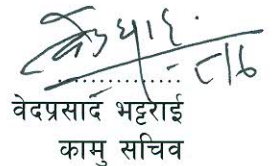 ..................
वेदप्रसाद भट्टराई
कामु सचिव